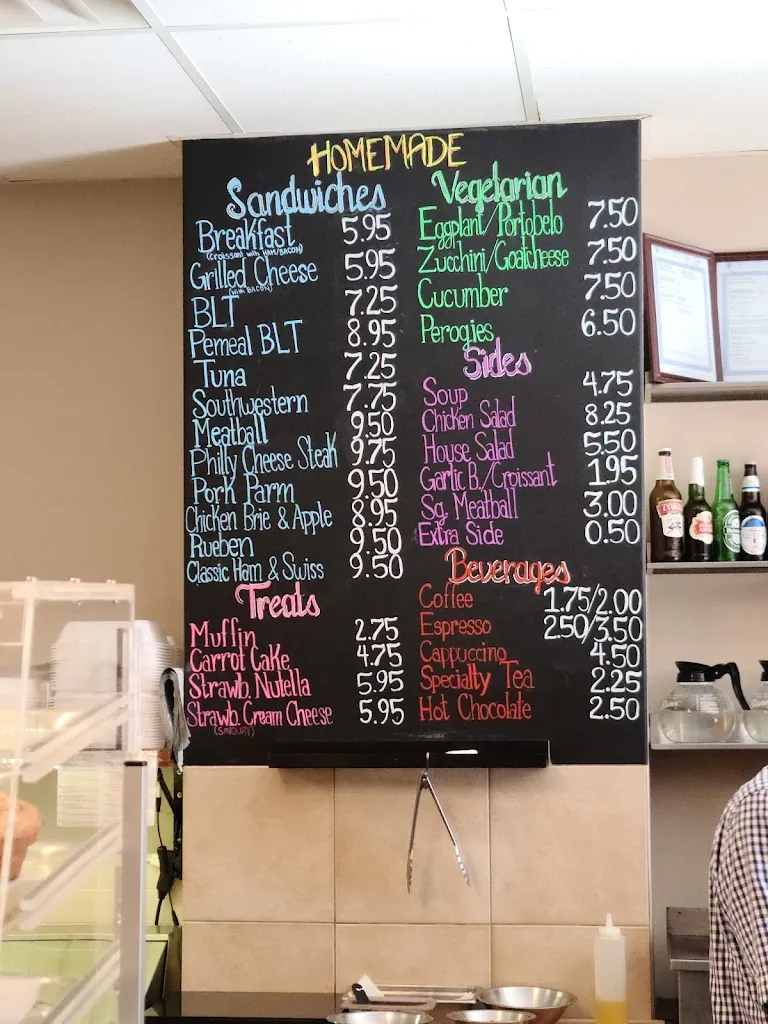 HOMEMADE
Sandwiches
Breakfast 5.95
(Croissant with HAM/BACON)
Grilled Cheese 5.95
(with BACON)
BLT 7.25
Pemeal BLT 8.95
Tuna 7.25
Southwestern 7.75
Meatball 9.50
Philly Cheese Steak 9.75
Pork Parm 9.50
Chicken Brie & Apple 8.95
Rueben 9.50
Classic Ham & Swiss 9.50
Treats
Muffin 2.75
Carrot Cake 4.75
Strawb. Nutella 5.95
Strawb. Cream Cheese 5.95
(SAVOURY)
Vegetarian
Eggplant/Portobelo 7.50
Zucchini/Goatcheese 7.50
Cucumber 7.50
Perogies 6.50
Sides
Soup 4.75
Chicken Salad 8.25
House Salad 5.50
Garlic B./Croissant 1.95
Sg. Meatball 3.00
Extra Side 0.50
Beverages
Coffee 1.75/2.00
Espresso 2.50/3.50
Cappuccino 4.50
Specialty Tea 2.25
Hot Chocolate 2.50